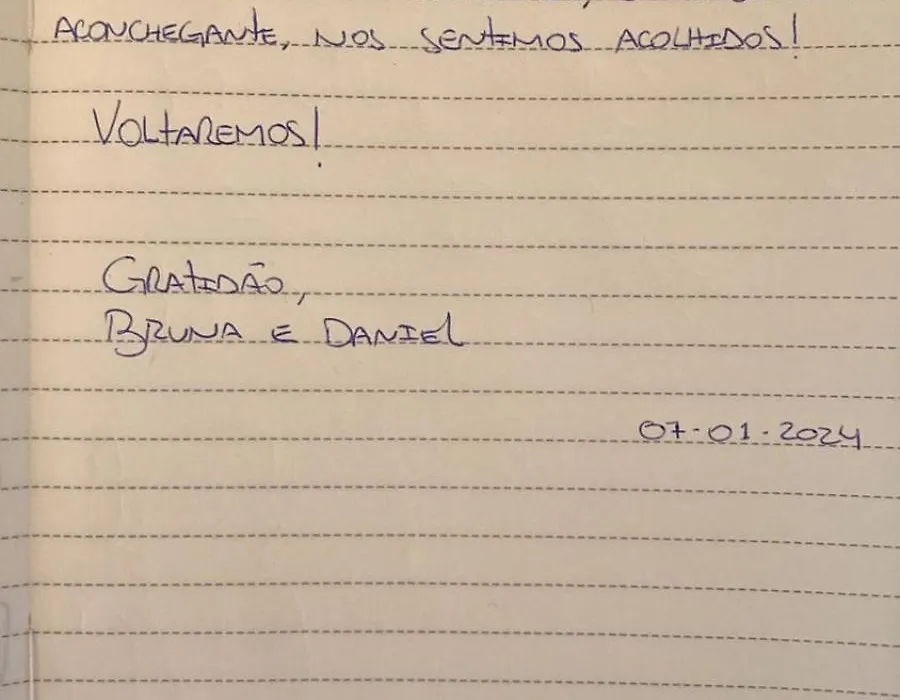 ACONCHEGANTE, NOS SENTIMOS ACOLHIDOS!
VOLTAREMOS!
GRATIDÃO,
BRUNA E DANIEL
07-01-2024